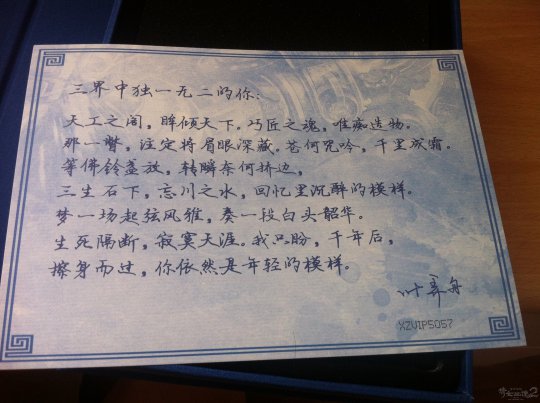 三界中独一无二的你：
天工之阁，眸倾天下。巧匠之魂，惟痴造物。
那一瞥，注定将眉眼深藏。苍何咒吟，千里成霜。
等佛铃盏放，转瞬奈何桥边，
三生石下，忘川之水，回忆里沉醉的模样。
梦一场起弦风雅，奏一段白头韶华。
生死隔断，寂寞天涯。我只盼，千年后，
擦身而过，你依然是年轻的模样。
叶弄舟
XZVIP5057